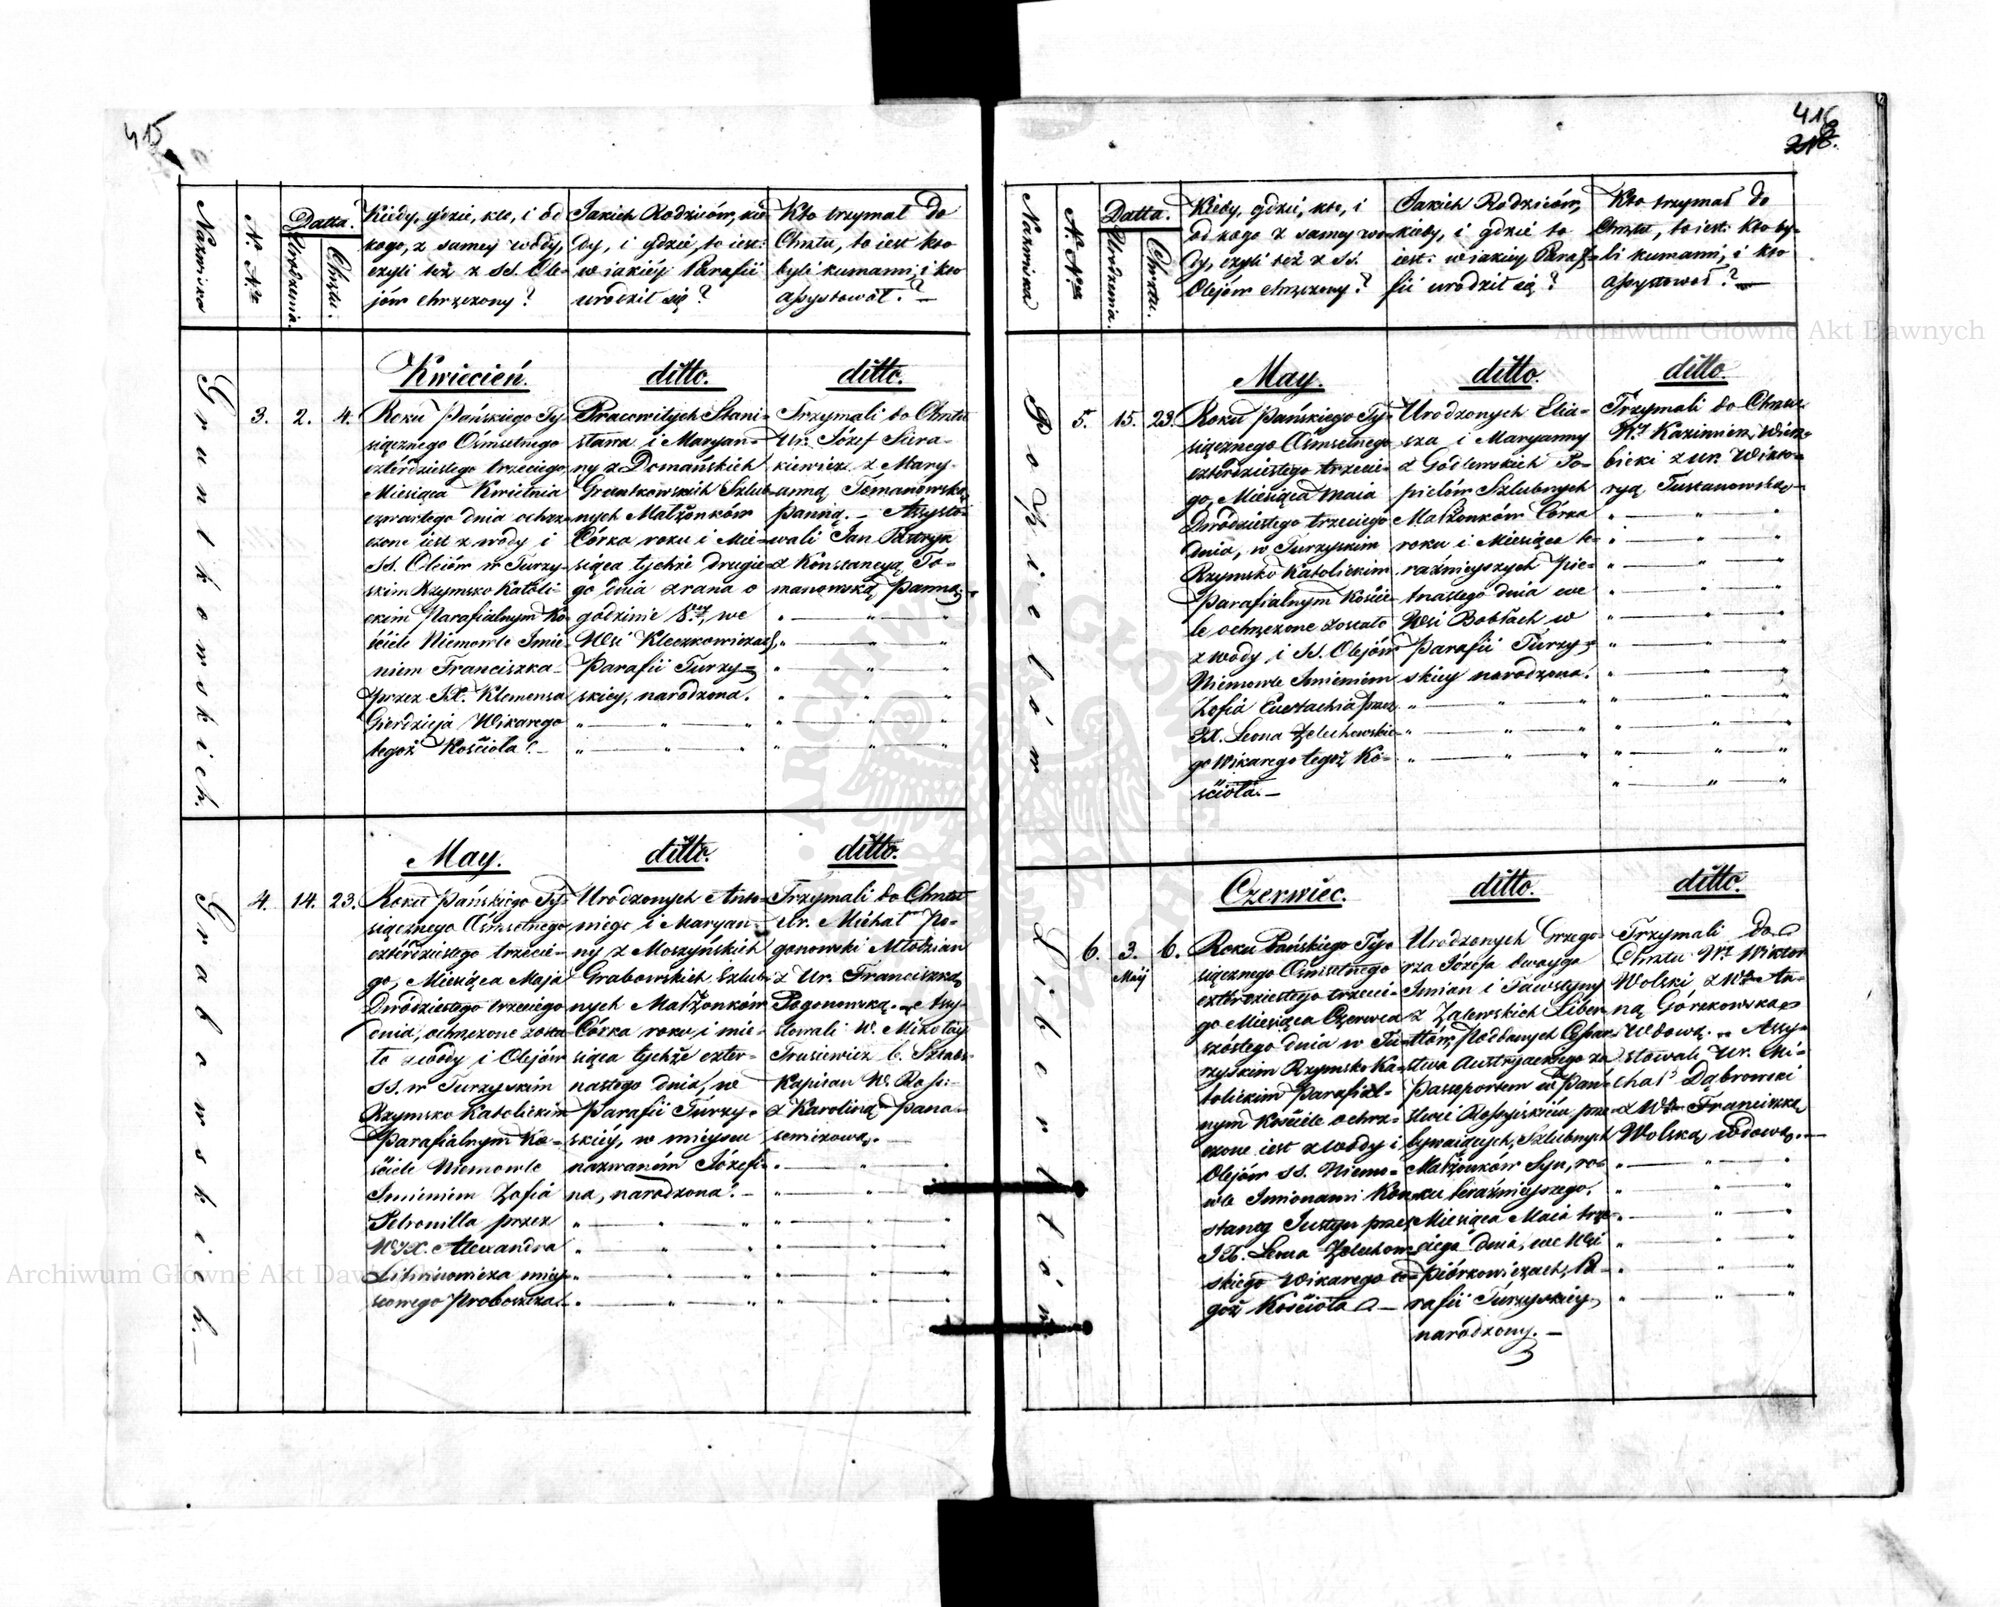 415
Nazwisko
N. Nro
Datta.
Urodzenia.
Chrztu.
Kiedy, gdzie, kto, i od
kogo, z samey wody,
czyli też z SS. Ole-
jów chrzczony?
Jakich Rodziców, kie
dy, i gdzie to iest:
w iakiéy Parafii
urodził się?
Kto trzymał do
Chrztu, to iest kto
byli kumami, i kto
assystował? —
Gruntkowskich.
3.
2.
4.
Kwiecień.
Roku Pańskiego Ty-
siącznego Ośmsetnego
czterdziestego trzeciego
Miesiąca Kwietnia
czwartego dnia ochrz-
czone iest z wody i
SS. Oleiów w Turzy-
skim Rzymsko Katoli-
ckim Parafialnym Ko-
ściele Niemowle Imie-
niem Franciszka
przez JX. Klemensa
Gierdzieja Wikarego
tegoż Kościoła. —
ditto.
Pracowitych Stani-
sława i Maryan-
ny z Domańskich
Gruntkowskich Szlub-
nych Małżonków
Córka roku i Mie-
siąca tychże drugie-
go dnia z rana o
godzinie 8méy, we
Wsi Kleczkowiczach,
Parafii Turzy-
skiey, narodzona.
ditto.
Trzymali do Chrztu
Ur. Józef Sura-
kiewicz z Mary-
anną Tomanowską
Panną. — Assysto-
wali Jan
z Konstancyą To-
manowską Panną.
Grabowskich. —
4.
14.
23.
May.
Roku Pańskiego Ty-
siącznego Ośmsetnego
czterdziestego trzecie-
go, Miesiąca Maja
Dwódziestego trzeciego
dnia, ochrzczone zosta-
ło z wody i Olejów
SS. w Turzyskim
Rzymsko Katolickim
Parafialnym Ko-
ściele Niemowle
Imieniem Zofia
Petronilla przez
WJX. Alexandra
Litwinowicza miey-
scowego Proboszcza.
ditto.
Urodzonych Anto-
niego i Maryan-
ny z Moszyńskich
Grabowskich Szlub-
nych Małżonków
Córka roku i mie-
siąca tychże czter-
nastego dnia, w
Parafii Turzy-
skiéy, w mieyscu
nazwaném Józefi-
na, narodzona. —
ditto.
Trzymali do Chrztu
Ur. Michał Po-
gonowski Młodzian
z Ur. Franciszką
Pogonowską. — Assy-
stowali W. Mikołay
Trusiewicz b. Sztabs-
Kapitan W. Ross:
z Karoliną Pana-
sewiczową. —
416
218.
Nazwiska
N. Nro
Datta.
Urodzenia.
Chrztu.
Kiedy, gdzie, kto, i
od kogo z samey wo-
dy, czyli też z SS.
Olejów chrzczony?
Jakich Rodziców,
kiedy, i gdzie to
iest: w iakiey Para-
fii urodził się?
Kto trzymał do
Chrztu, to iest: kto by-
li kumami, i kto
assystował? —
Popielów
5.
15.
23.
May.
Roku Pańskiego Ty-
siącznego Ośmsetnego
czterdziestego trzecie-
go, Miesiąca Maia
Dwódziestego trzeciego
dnia, w Turzyskim
Rzymsko Katolickim
Parafialnym Koście-
le ochrzczone zostało
z wody i SS. Olejów
Niemowle Imieniem
Zofia Eustachia przez
JX. Leona Żelechowskie-
go Wikarego tegoż Ko-
ścioła. —
ditto.
Urodzonych Elia-
sza i Maryanny
z Godlewskich Po-
pielów Szlubnych
Małżonków Córka
roku i Miesiąca te-
raźnieyszych pię-
tnastego dnia we
Wsi Bobłach w
Parafii Turzy-
skiey narodzona.
ditto
Trzymali do Chrztu
Kazimierz Wierz-
bicki z ur. Wikto-
ryą Tustanowską. —
Libentlów. —
6.
3.
May
6.
Czerwiec.
Roku Pańskiego Ty-
siącznego Ośmsetnego
czterdziestego trzecie-
go Miesiąca Czerwca
szóstego dnia w Tu-
rzyskim Rzymsko Ka-
tolickim Parafial-
nym Kościele ochrz-
czone iest z wody i
Olejów SS. Niemo-
wle Imionami Kon-
stanty Justyn przez
JX. Leona Żelechow-
skiego Wikarego te-
goż Kościoła. —
ditto.
Urodzonych Grzego-
rza Józefa dwoyga
Imion i Fawstyny
z Zalewskich Liben-
tlów, Poddanych Cesar-
stwa Austryackiego za
Paszportem w Pań-
stwie Rossyiskim prze-
bywaiących, Szlubnych
Małżonków Syn, ro-
ku teraźniejszego,
Miesiąca Maia trze-
ciego dnia, we Wsi
Piórkowiczach, Pa-
rafii Turzyskiey
narodzony. —
ditto.
Trzymali do
Chrztu Wy Wiktor
Wolski z Wą An-
ną Górskowską
Wdową. — Assy-
stowali Ur. Mi-
chał Dąbrowski
z Wą Franciszką
Wolską wdową. —
Archiwum Główne Akt Dawnych
Archiwum Główne Akt Dawnych